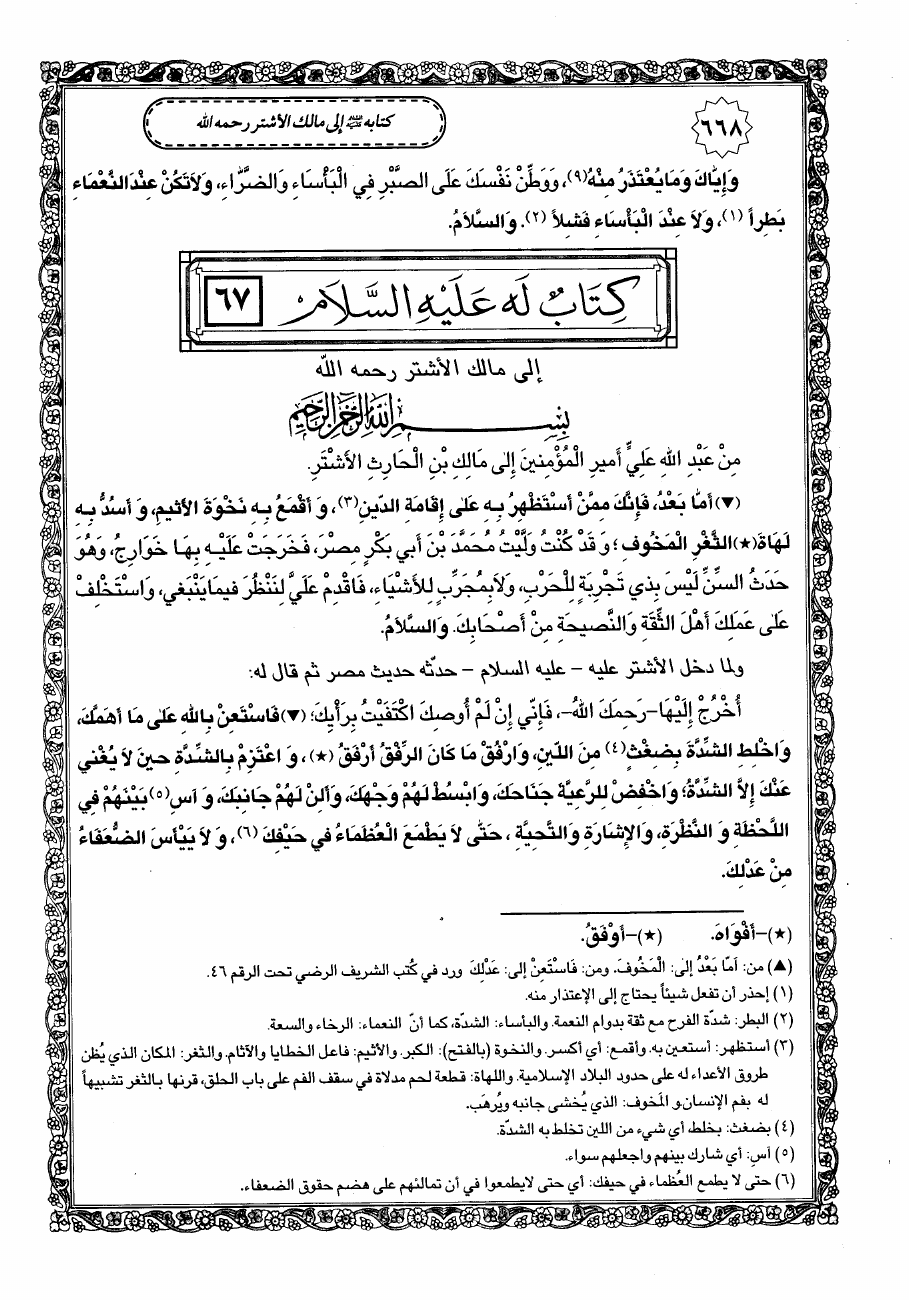 ٦٦٨
كتابه عليه السلام إلى مالك الأشتر رحمه الله
وَإِيَّاكَ وَمَا يُعْتَذَرُ مِنْهُ(٩)، وَوَطِّنْ نَفْسَكَ عَلَى الصَّبْرِ فِي الْبَأْسَاءِ وَالضَّرَّاءِ، وَلاَ تَكُنْ عِنْدَ النَّعْمَاءِ
بَطِراً (١)، وَلاَ عِنْدَ الْبَأْسَاءِ فَشِلاً (٢). وَالسَّلاَمُ.
كِتَابٌ لَه عَلَيْهِ السَّلَام ٦٧
إلى مالك الأشتر رحمه اللّه
بِسْمِ اللهِ الرَّحْمنِ الرَّحِيمِ
مِنْ عَبْدِ اللهِ عَلِيٍّ أَميرِ الْمُؤْمِنينَ إِلىٰ مَالِكِ بْنِ الْحَارِثِ الأَشْتَرِ.
(▼) أَمَّا بَعْدُ، فَإِنَّكَ مِمَّنْ أَسْتَظْهِرُ بِهِ عَلىٰ إِقَامَةِ الدّينِ(٣)، وَ أَقْمَعُ بِهِ نَخْوَةَ الأَثيمِ، وَ أَسُدُّ بِهِ
لَهَاةَ(★)الثَّغْرِ الْمَخُوفِ؛ وَ قَدْ كُنْتُ وَلَّيْتُ مُحَمَّدَ بْنَ أَبي بَكْرٍ مِصْرَ، فَخَرَجَتْ عَلَيْهِ بِهَا خَوَارِجُ، وَهُوَ
حَدَثُ السِّنِّ لَيْسَ بِذي تَجْرِبَةٍ لِلْحَرْبِ، وَلاَ بِمُجَرِّبٍ لِلأَشْيَاءِ، فَاقْدِمْ عَلَيَّ لِنَنْظُرَ فيمَا يَنْبَغي، وَاسْتَخْلِفْ
عَلىٰ عَمَلِكَ أَهْلَ الثِّقَةِ وَالنَّصيحَةِ مِنْ أَصْحَابِكَ. وَالسَّلاَمُ.
ولما دخل الأشتر عليه – عليه السلام – حدّثه حديث مصر ثم قال له:
أُخْرُجْ إِلَيْهَا–رَحِمَكَ اللهُ–، فَإِنّي إِنْ لَمْ أُوصِكَ اكْتَفَيْتُ بِرَأْيِكَ؛ (▼)فَاسْتَعِنْ بِاللهِ عَلىٰ مَا أَهَمَّكَ،
وَاخْلِطِ الشِّدَّةَ بِضِغْثٍ(٤) مِنَ اللّينِ، وَارْفُقْ مَا كَانَ الرِّفْقُ أَرْفَقَ (★)، وَ اعْتَزِمْ بِالشِّدَّةِ حينَ لاَ يُغْني
عَنْكَ إِلاَّ الشِّدَّةُ؛ وَاخْفِضْ لِلرَّعِيَّةِ جَنَاحَكَ، وَابْسُطْ لَهُمْ وَجْهَكَ، وَأَلِنْ لَهُمْ جَانِبَكَ، وَ آسِ(٥) بَيْنَهُمْ فِي
اللَّحْظَةِ وَ النَّظْرَةِ، وَالإِشَارَةِ وَالتَّحِيَّةِ ، حَتّىٰ لاَ يَطْمَعَ الْعُظَمَاءُ في حَيْفِكَ (٦)، وَ لاَ يَيْأَسَ الضُّعَفَاءُ
مِنْ عَدْلِكَ.
(★)–أَفْوَاهَ. (★)–أَوْفَقُ.
(▲) من: أَمَّا بَعْدُ إلى: الْمَخُوفَ. ومن: فَاسْتَعِنْ إلى: عَدْلِكَ ورد في كُتب الشريف الرضي تحت الرقم ٤٦.
(١) إحذر أن تفعل شيئاً يحتاج إلى الإعتذار منه.
(٢) البطر: شدّة الفرح مع ثقة بدوام النعمة. والبأساء: الشدّة، كما أنّ النعماء: الرخاء والسعة.
(٣) أستظهر: أستعين به. وأقمع: أي أكسر. والنخوة (بالفتح): الكبر. والأثيم: فاعل الخطايا والآثام. والثغر: المكان الذي يُظن
طروق الأعداء له على حدود البلاد الإسلامية. واللهاة: قطعة لحم مدلاة في سقف الفم على باب الحلق، قرنها بالثغر تشبيهاً
له بفم الإنسان.و المخوف: الذي يُخشى جانبه ويُرهَب.
(٤) بضغث: بخلط، أي شيء من اللين تخلط به الشدّة.
(٥) آسِ: أي شارك بينهم واجعلهم سواء.
(٦) حتى لا يطمع العُظماء في حيفك: أي حتى لايطمعوا في أن تمالئهم على هضم حقوق الضعفاء.